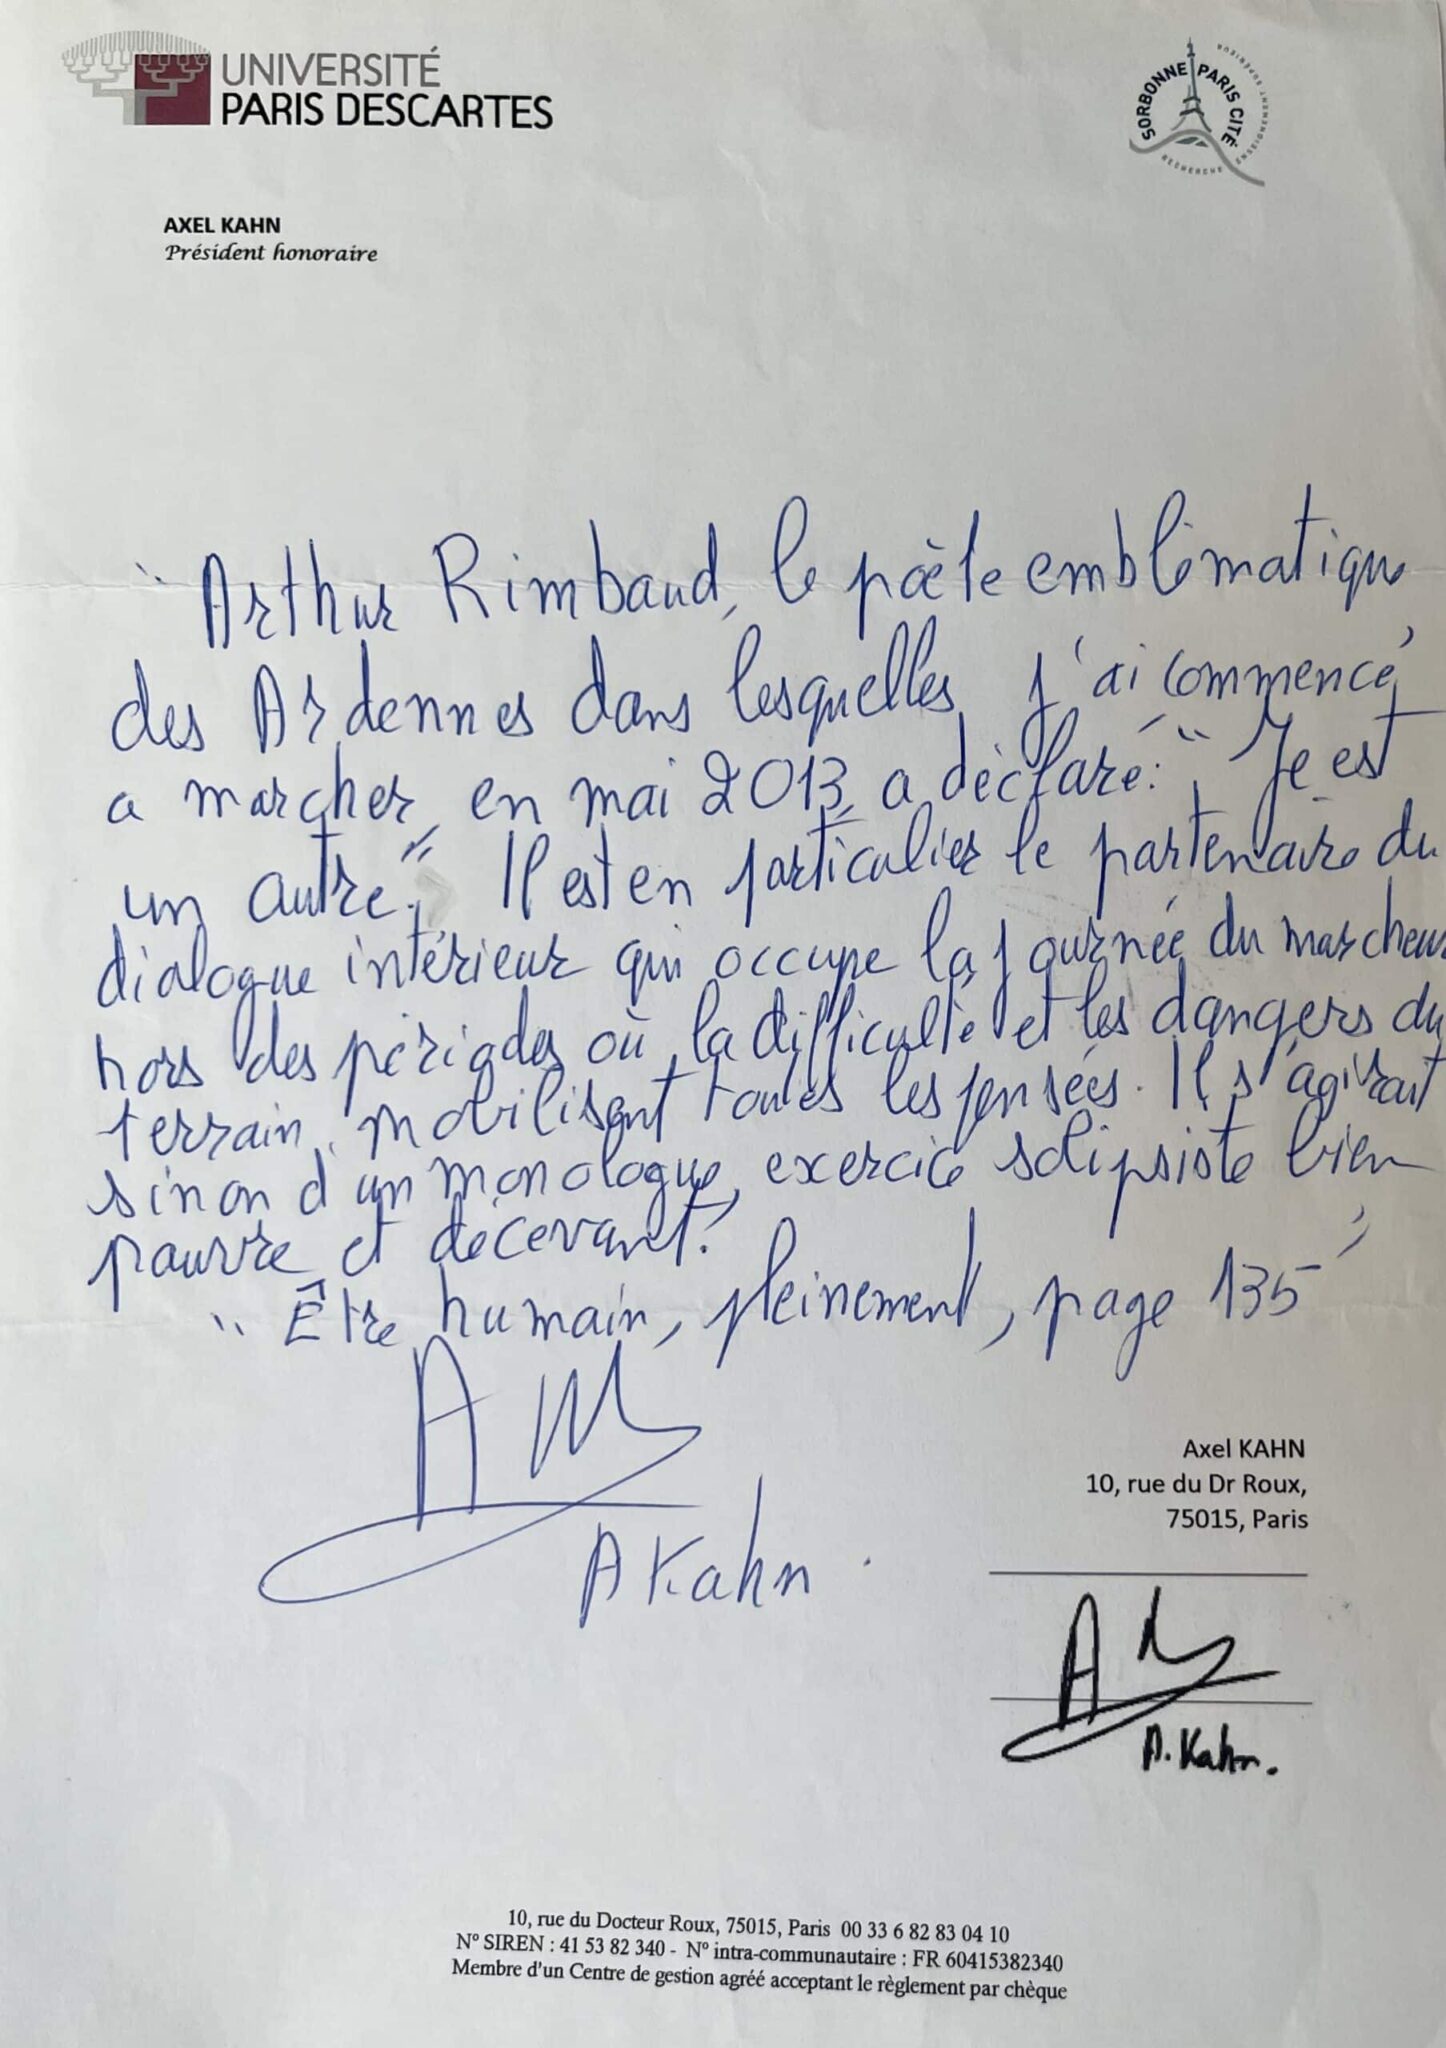 UNIVERSITÉ
PARIS DESCARTES
SORBONNE PARIS CITÉ
RECHERCHE ENSEIGNEMENT SUPÉRIEUR
AXEL KAHN
Président honoraire
" Arthur Rimbaud, le poète emblématique
des Ardennes dans lesquelles j'ai commencé
a marcher en mai 2013, a déclaré : " Je est
un autre". Il est en particulier le partenaire du
dialogue intérieur qui occupe la journée du marcheur
hors des périodes où la difficulté et les dangers du
terrain mobilisent toutes les pensées. Il s'agirait
sinon d'un monologue, exercice solipsiste bien
pauvre et décevant.
" Être humain, pleinement, page 135 "
A Kahn.
Axel KAHN
10, rue du Dr Roux,
75015, Paris
A. Kahn.
10, rue du Docteur Roux, 75015, Paris 00 33 6 82 83 04 10
N° SIREN : 41 53 82 340 - N° intra-communautaire : FR 60415382340
Membre d'un Centre de gestion agréé acceptant le règlement par chèque